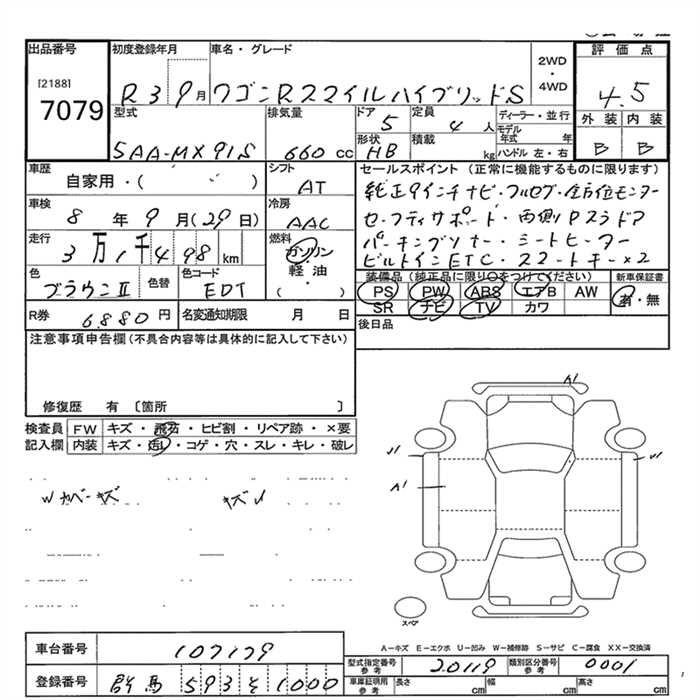 出品番号 初度登録年月 車名・グレード 2WD・4WD 評価点
[2188]
7079
R3 9月 ワゴンRスマイルハイブリッドS 4.5
型式 排気量 ドア 定員 ディーラー・並行 外装 内装
5 4人 モデル年式 年
5AA-MX91S 660cc 形状 積載 ハンドル 左・右 B B
HB kg
車歴 シフト セールスポイント (正常に機能するものに限ります)
自家用・( ) AT 純正9インチナビ・フルセグ・全方位モニター
車検 冷房 セーフティサポート・両側Pスラドア
8年9月(29日) AAC パーキングソナー・シートヒーター
走行 燃料 ビルトインETC・スマートキー×2
3万1千498km ガソリン・軽油・( )
色 色替 色コード 装備品 (純正品に限り○をつけてください) 新車保証書
ブラウンⅡ EDT PS PW ABS エアB AW 有・無
SR ナビ TV カワ
R券 6,880円 名変通知期限 月 日 後日品
注意事項申告欄 (不具合内容等は具体的に記入して下さい)
修復歴 有 〔箇所 〕
検査員 FW キズ・飛石・ヒビ割・リペア跡・×要
記入欄 内装 キズ・汚レ・コゲ・穴・スレ・キレ・破レ
Wカバーキズ
A1
A1
スペア
A-キズ E-エクボ U-凹み W-補修跡 S-サビ C-腐食 XX-交換済
車台番号 107179
型式指定番号 参考 20119 類別区分番号 参考 0001
登録番号 群馬 593 そ 1000
車庫証明用 参考 長さ cm 幅 cm 高さ cm